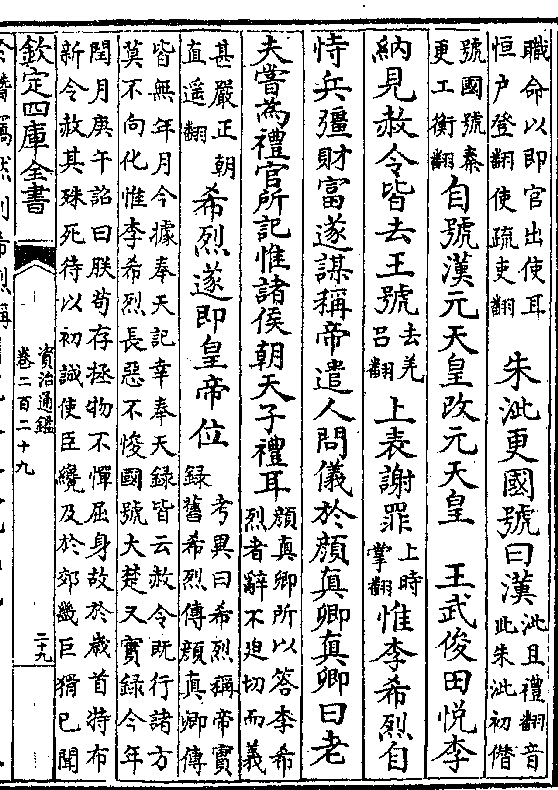 職命以即官出使耳
恒户登翻使疏吏翻
朱泚更國號曰漢
泚且禮翻音
此朱泚初僭
號國號秦
更工衡翻
自號漢元天皇改元天皇　王武俊田悦李
納見赦令皆去王號
去羌
吕翻
上表謝罪
上時
掌翻
惟李希烈自
恃兵彊財富遂謀稱帝遣人問儀於顔真卿真卿曰老
夫嘗爲禮官所記惟諸侯朝天子禮耳
顔真卿所以答李希
烈者辭不迫切而義
甚嚴正朝
直遥翻
希烈遂即皇帝位
考異曰希烈稱帝實
録舊希烈傳顔真卿傳
皆無年月今據奉天記幸奉天録皆云赦令既行諸方
莫不向化惟李希烈長惡不悛國號大楚又實録今年
閏月庚午詔曰朕苟存拯物不憚屈身故於歲首特布
新令赦其殊死待以初誠使臣纔及於郊畿巨猾已聞
欽定四庫全書
資治通鑑
卷二百二十九
二十九